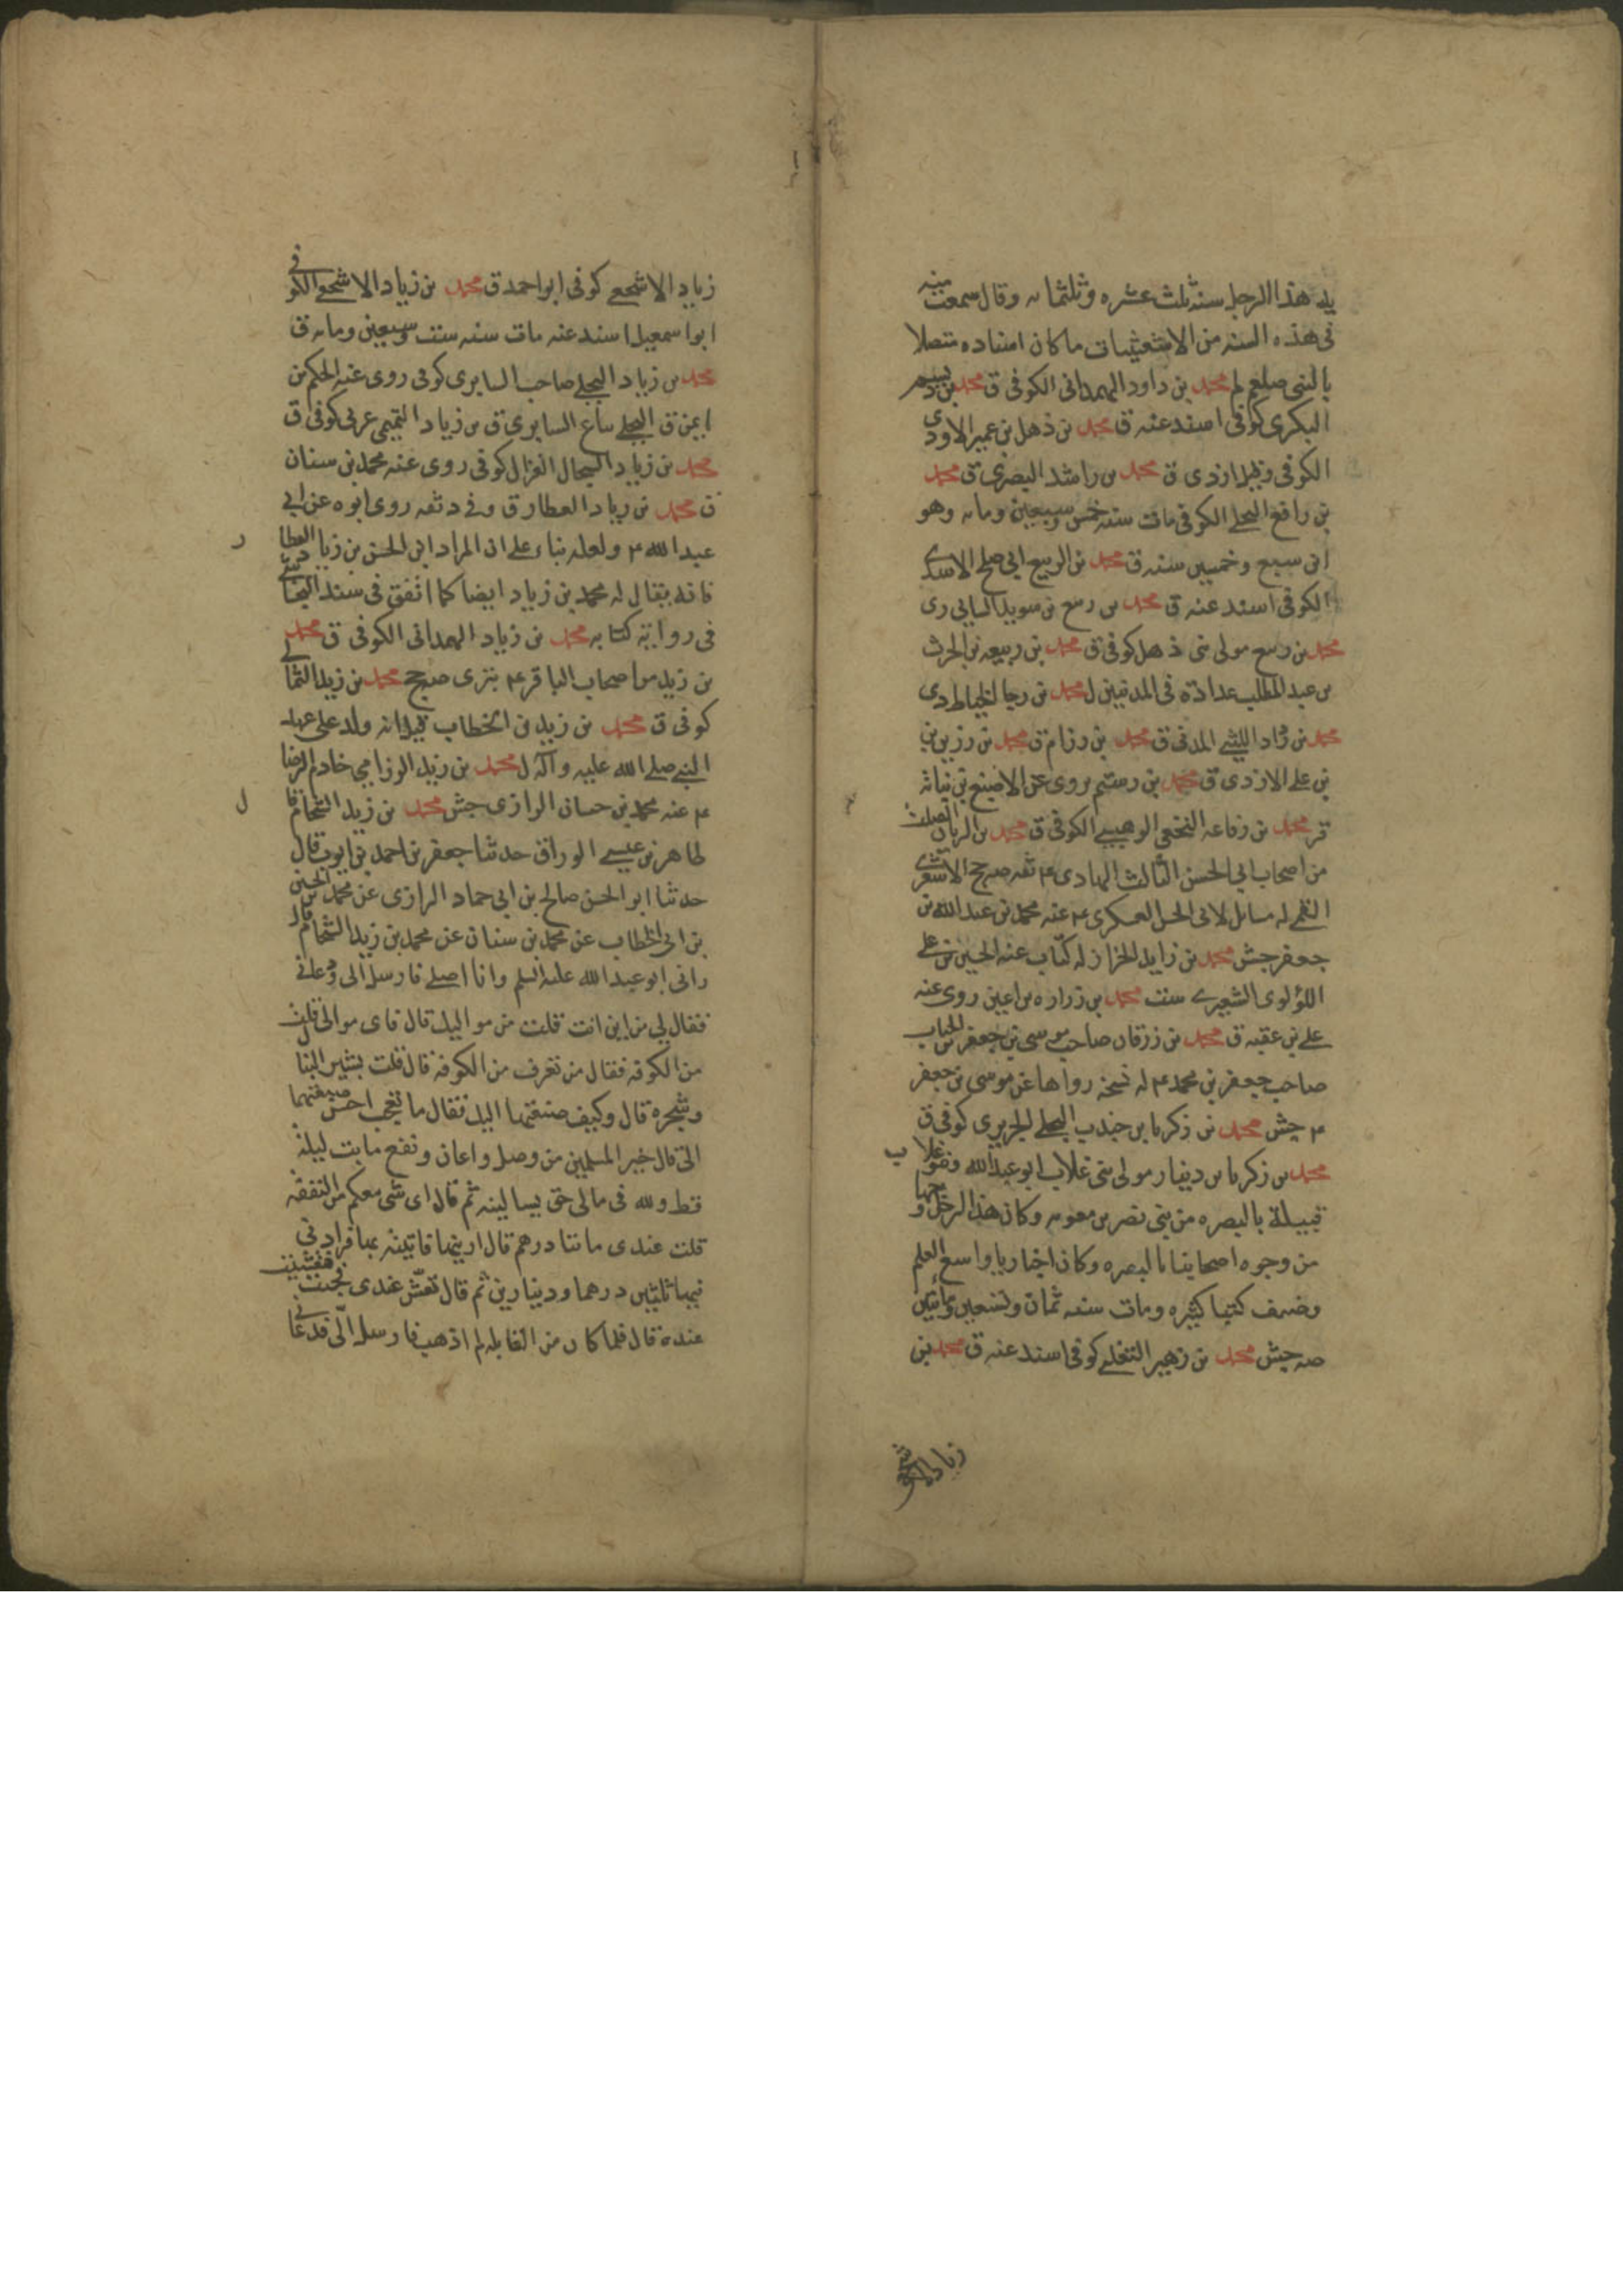 يد هذا الرجل سنه ثلث عشره وثلثمايه وقال سمعت منه
فى هذه السنه من الاشعثيات ما كان اسناده متصلا
بالنبى صلعم لم محمد بن داود الهمدانى الكوفى ق محمد بن
البكرى كوفى اسند عنه ق محمد بن ذهل بن عمير الاودى
الكوفى وقيل ازدى ق محمد بن راشد البصرى ق محمد
بن رافع البجلى الكوفى مات سنه خمس وسبعين ومايه وهو
ابن سبع وخمسين سنه ق محمد بن الربيع ابى صلح الاسدى
الكوفى اسند عنه ق محمد بن ربيع بن سويد السابى رى
محمد بن ربيع مولى بنى ذهل كوفى ق محمد بن ربيعه بن الحرث
بن عبد المطلب عداده فى المدنيين ل محمد بن رجا الخياط دى
محمد بن الليثى المدنى ق محمد بن رزام ق محمد بن رزين بن
بن على الازدى ق محمد بن رستم يروى عن الاصبغ بن نباته
قر محمد بن رفاعه النخعى الوهبيلى الكوفى ق محمد بن الريان الصلت
من اصحاب ابى الحسن الثالث الهادى ع ثقه صح الاشعرى
القمى له مسائل لابى الحسن العسكرى ع عنه محمد بن عبد الله بن
جعفر جش محمد بن زايد الخزاز له كتاب عنه الحسين بن على
اللؤلوى الشعيرى ست محمد بن زراره بن اعين روى عنه
على بن عقبه ق محمد بن زرقان صاحب موسى بن جعفر بن الحباب
صاحب جعفر بن محمد ع له نسخه رواها عن موسى بن جعفر
ع جش محمد بن زكريا بن جندب البجلى الجريرى كوفى ق
محمد بن زكريا بن دينار مولى بنى غلاب ابو عبد الله وبنو غلاب
قبيلة بالبصره من بنى نصر بن معويه وكان هذا الرجل وجها
من وجوه اصحابنا بالبصره وكان اخباريا واسع العلم
وصنف كتبا كثيره ومات سنه ثمان وتسعين ومائتين
صه جش محمد بن زهير التغلبى كوفى اسند عنه ق محمد بن
زياد الاشجع
زياد الاشجعى كوفى ابو احمد ق محمد بن زياد الاشجعى الكوفى
ابو اسمعيل اسند عنه مات سنه ست وسبعين ومايه ق
محمد بن زياد البجلى صاحب السابرى كوفى روى عنه الحكم بن
ايمن ق البجلى بياع السابرى ق بن زياد التميمى عربى كوفى ق
محمد بن زياد السجال الغزال كوفى روى عنه محمد بن سنان
ق محمد بن زياد العطار ق وفى د ثقه روى ابوه عن ابى
عبد الله ع ولعله بناء على ان المراد ابن الحسن بن زياد العطار
فانه يقال له محمد بن زياد ايضا كما اتفق فى سند النجاشى
فى روايته كتابه محمد بن زياد الهمدانى الكوفى ق محمد
بن زيد من اصحاب الباقر ع بترى صح محمد بن زيد الشامى
كوفى ق محمد بن زيد بن الخطاب قيل انه ولد على عهد
النبى صلى الله عليه وآله ل محمد بن زيد الرزامى خادم الرضا
ع عنه محمد بن حسان الرازى جش محمد بن زيد الشحام
طاهر بن عيسى الوراق حدثنا جعفر بن احمد بن ايوب قال
حدثنا ابو الحسن صالح بن ابى حماد الرازى عن محمد بن الحسين
بن ابى الخطاب عن محمد بن سنان عن محمد بن زيد الشحام قال
رانى ابو عبد الله عليه السلم وانا اصلى فارسل الى ودعانى
فقال لى من اين انت قلت من مواليك قال فاى موالى قلت
من الكوفه فقال من تعرف من الكوفه قال قلت بشير النبال
وشجره قال وكيف صنيعتهما اليك فقال ما احسن صنيعتهما
الى قال خير المسلمين من وصل واعان ونفع ما بت ليلة
قط ولله فى مالى حق يسالنيه ثم قال اى شى معكم من النفقه
قلت عندى مائتا درهم قال ارينها فاتيته بها فزادنى
فيها ثلثين درهما ودينارين ثم قال تعش عندى فجئت فتعشيت
عنده قال فلما كان من القابله لم اذهب فارسل الى فدعانى